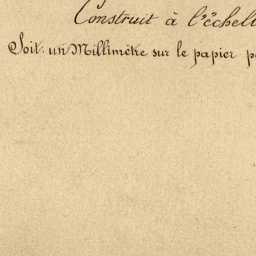 Construit à l'échell
Soit. un Millimètre sur le papier p